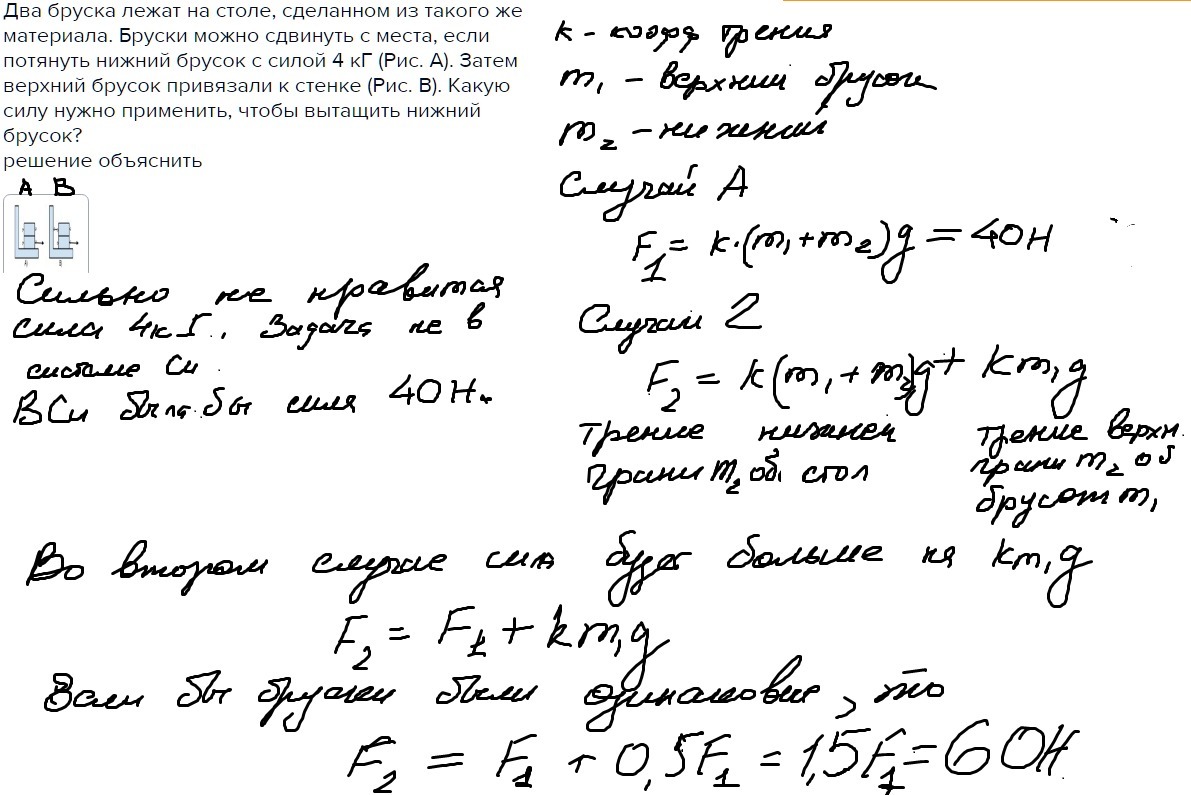 Два бруска лежат на столе, сделанном из такого же
материала. Бруски можно сдвинуть с места, если
потянуть нижний брусок с силой 4 кГ (Рис. А). Затем
верхний брусок привязали к стенке (Рис. В). Какую
силу нужно применить, чтобы вытащить нижний
брусок?
решение объяснить
А В
Сильно не нравится
сила 4кГ. Задача не в
системе Си.
В Си была бы сила 40Н.
k - коэфф трения
m₁ - верхний брусок
m₂ - нижний
Случай А
F₁ = k·(m₁+m₂)g = 40Н
Случай 2
F₂ = k(m₁+m₂)g + km₁g
трение нижней
грани m₂ об стол
трение верхн.
грани m₂ об
брусок m₁
Во втором случае сила будет больше на km₁g
F₂ = F₁ + km₁g
Если бы бруски были одинаковые, то
F₂ = F₁ + 0,5F₁ = 1,5F₁ = 60Н